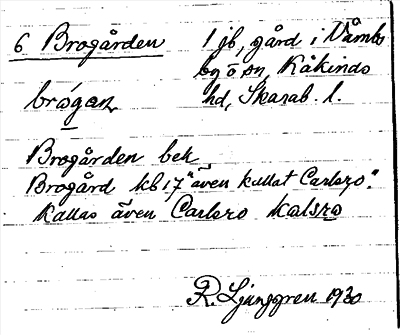 6 Brogården 1 jb, gård i Våmbs
by o sn, Kåkinds
brógan, hd, Skarab. l.
Brogården bek
Brogård kb 17 "även kallat Carlsro".
Kallas även Carlsro kalsro
R. Ljunggren 1930